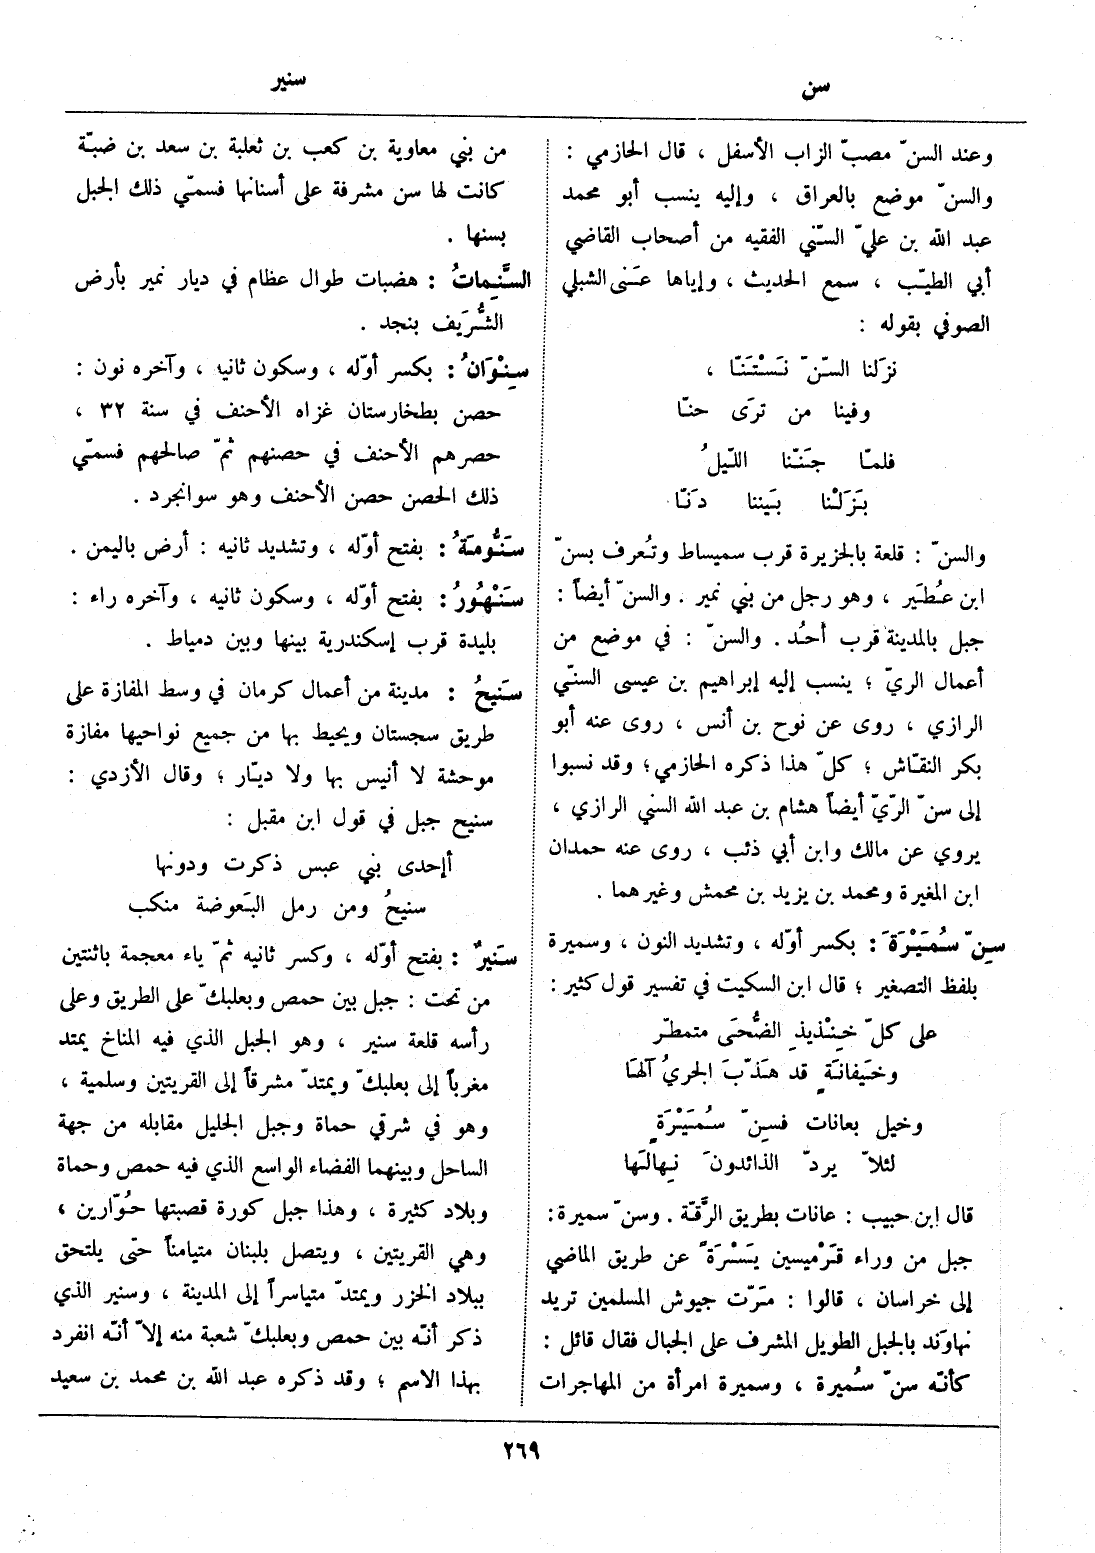 سن
سنير
وعند السنّ مصبّ الزاب الأسفل ، قال الحازمي :
والسنّ موضع بالعراق ، وإليه ينسب أبو محمد
عبد الله بن عليّ السّنّي الفقيه من أصحاب القاضي
أبي الطيّب ، سمع الحديث ، وإياها عَنى الشبلي
الصوفي بقوله :
نزلنا السّنّ نَسْتَنّا ،
وفينا من ترَى حنّا
فلمّا جَنّنا اللّيلُ
بَزَلْنا بَيننا دَنّا
والسنّ : قلعة بالجزيرة قرب سميساط وتُعرف بسنّ
ابن عُطَير ، وهو رجل من بني نمير . والسنّ أيضاً :
جبل بالمدينة قرب أُحُد . والسنّ : في موضع من
أعمال الريّ ؛ ينسب إليه إبراهيم بن عيسى السنّي
الرازي ، روى عن نوح بن أنس ، روى عنه أبو
بكر النقّاش ؛ كلّ هذا ذكره الحازمي ؛ وقد نسبوا
إلى سنّ الرّيّ أيضاً هشام بن عبد الله السني الرازي ،
يروي عن مالك وابن أبي ذئب ، روى عنه حمدان
ابن المغيرة ومحمد بن يزيد بن محمش وغيرهما .
سِنّ سُمَيْرَةَ : بكسر أوّله ، وتشديد النون ، وسميرة
بلفظ التصغير ؛ قال ابن السكيت في تفسير قول كثير :
على كلّ خِنْذيذِ الضُّحَى متمطّرٍ
وخَيفانَةٍ قد هَذّبَ الجريُ آلهَا
وخيل بعانات فسِنّ سُمَيْرَةٍ
لئلاّ يردّ الذائدونَ نِهالَها
قال ابن حبيب : عانات بطريق الرَّقّة . وسنّ سميرة :
جبل من وراء قَرْميسين يَسْرَةً عن طريق الماضي
إلى خراسان ، قالوا : مَرّت جيوش المسلمين تريد
نهاوَند بالجبل الطويل المشرف على الجبال فقال قائل :
كأنّه سنّ سُميرة ، وسميرة امرأة من المهاجرات
من بني معاوية بن كعب بن ثعلبة بن سعد بن ضبّة
كانت لها سن مشرفة على أسنانها فسمّي ذلك الجبل
بسنها .
السَّنِماتُ : هضبات طوال عظام في ديار نمير بأرض
الشُّرَيف بنجد .
سِنْوَانُ : بكسر أوّله ، وسكون ثانيه ، وآخره نون :
حصن بطخارستان غزاه الأحنف في سنة ٣٢ ،
حصرهم الأحنف في حصنهم ثمّ صالحهم فسمّي
ذلك الحصن حصن الأحنف وهو سوانجرد .
سَنُّومَةُ : بفتح أوّله ، وتشديد ثانيه : أرض باليمن .
سَنْهُورُ : بفتح أوّله ، وسكون ثانيه ، وآخره راء :
بليدة قرب إسكندرية بينها وبين دمياط .
سَنيحُ : مدينة من أعمال كرمان في وسط المفازة على
طريق سجستان ويحيط بها من جميع نواحيها مفازة
موحشة لا أنيس بها ولا ديّار ؛ وقال الأزدي :
سنيح جبل في قول ابن مقبل :
أإحدى بني عبس ذكرت ودونها
سنيحُ ومن رمل البَعوضة منكب
سَنيرٌ : بفتح أوّله ، وكسر ثانيه ثمّ ياء معجمة باثنتين
من تحت : جبل بين حمص وبعلبكّ على الطريق وعلى
رأسه قلعة سنير ، وهو الجبل الذي فيه المناخ يمتد
مغرباً إلى بعلبكّ ويمتدّ مشرقاً إلى القريتين وسلمية ،
وهو في شرقي حماة وجبل الجليل مقابله من جهة
الساحل وبينهما الفضاء الواسع الذي فيه حمص وحماة
وبلاد كثيرة ، وهذا جبل كورة قصبتها حُوّارين ،
وهي القريتين ، ويتصل بلبنان متيامناً حتّى يلتحق
ببلاد الخزر ويمتدّ متياسراً إلى المدينة ، وسنير الذي
ذكر أنّه بين حمص وبعلبكّ شعبة منه إلاّ أنّه انفرد
بهذا الاسم ؛ وقد ذكره عبد الله بن محمد بن سعيد
٢٦٩